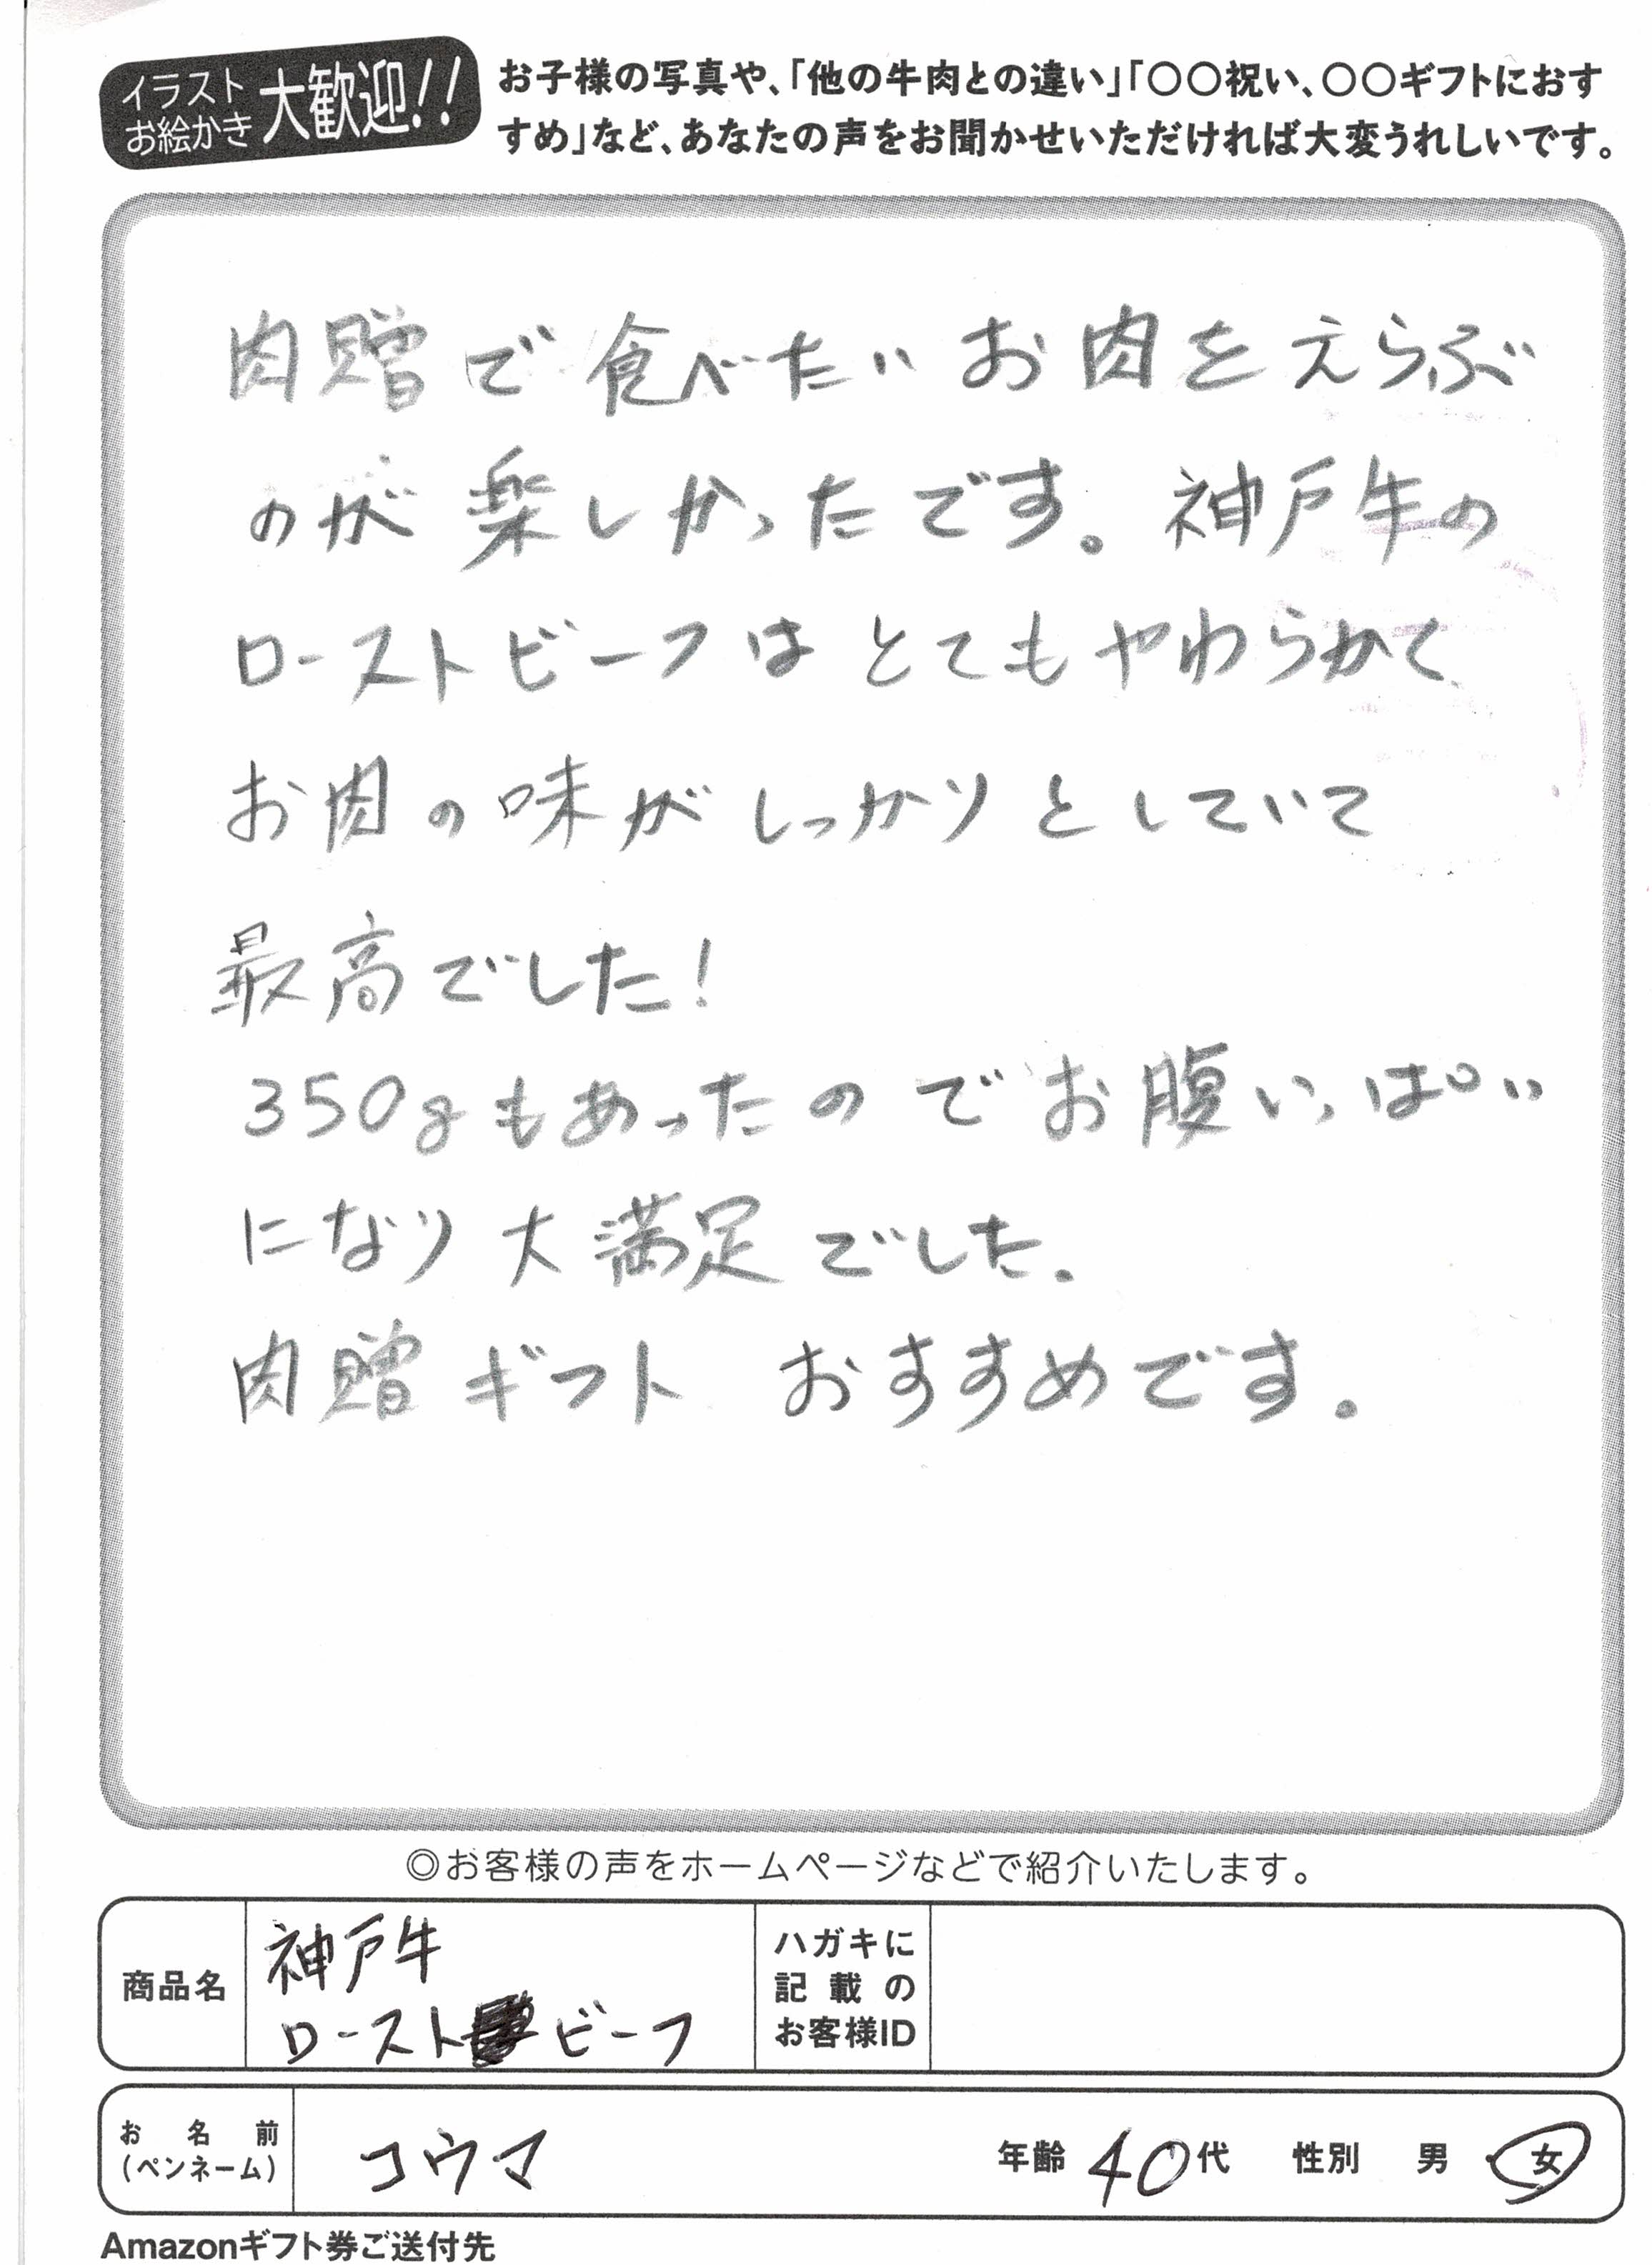 イラスト
お絵かき
大歓迎!!
お子様の写真や、「他の牛肉との違い」「〇〇祝い、〇〇ギフトにおす
すめ」など、あなたの声をお聞かせいただければ大変うれしいです。
肉贈で食べたいお肉をえらぶ
のが楽しかったです。神戸牛の
ローストビーフはとてもやわらかく
お肉の味がしっかりとしていて
最高でした!
350gもあったのでお腹いっぱい
になり大満足でした.
肉贈ギフト おすすめです。
◎お客様の声をホームページなどで紹介いたします。
商品名
神戸牛
ローストビーフ
ハガキに
記載の
お客様ID
お名前
(ペンネーム)
コウマ
年齢 40代 性別 男 女
Amazonギフト券ご送付先